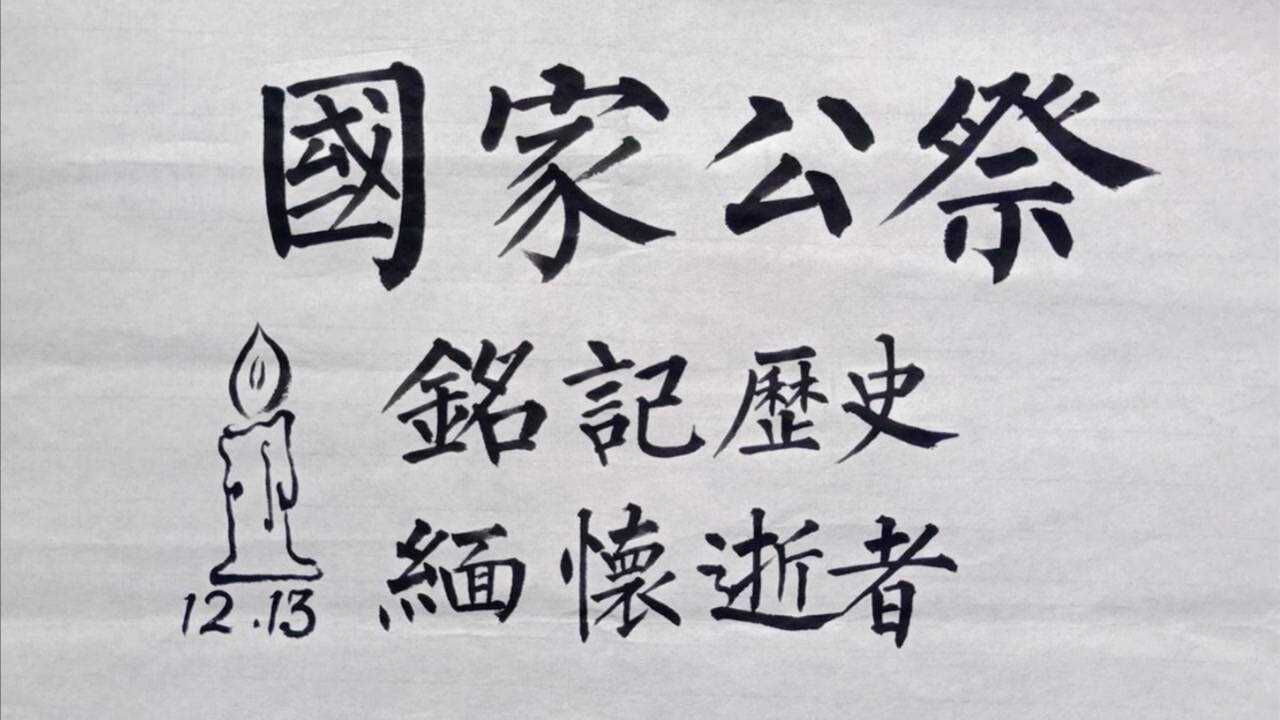 國家公祭
銘記歷史
緬懷逝者
12.13